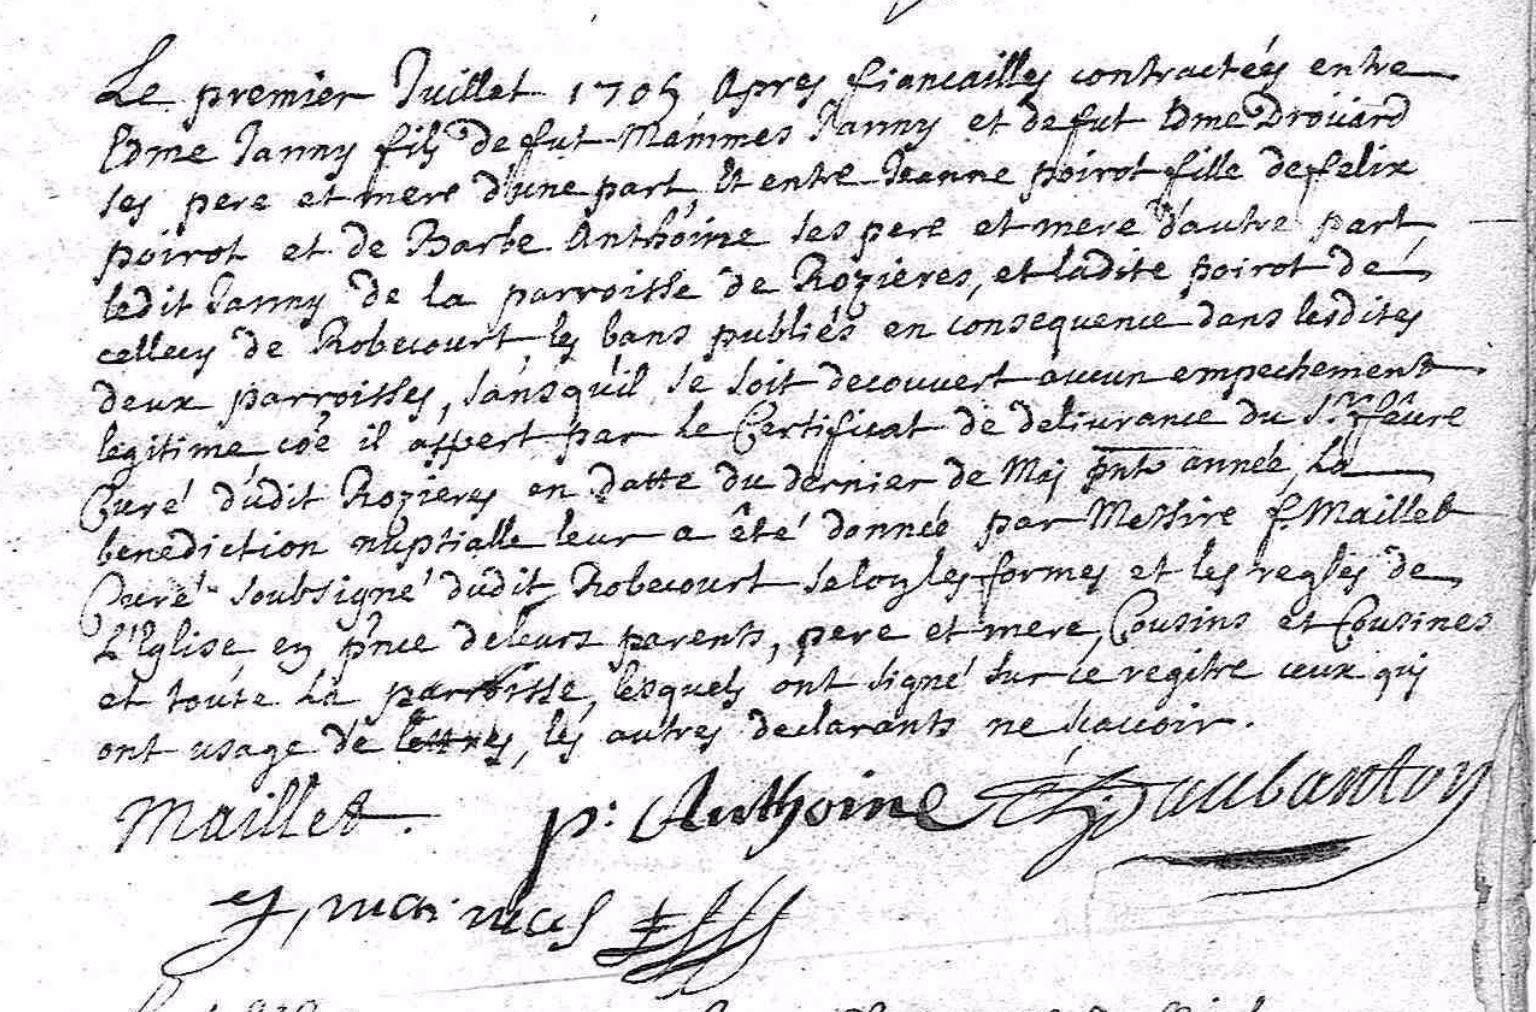 Le premier Juillet 1705 Apres fiancailles contractées entre
Edme Janny fils de fut Mammes Janny et de fut Edme Droüard
ses pere et mere d'une part, Et entre Jeanne poirot fille de felix
poirot et de Barbe Anthoine ses pere et mere d'autre part
ledit Janny de la parroisse de Rozieres, et ladite poirot de
cellecy de Robecourt, les bans publiés en consequence dans lesdites
deux parroisses, sans qu'il se soit decouvert aucun empechement
legitime cõe il appert par le Certificat de delivrance du Sr. fêvre
Curé dudit Rozieres en datte du dernier de Maj pnte année, La
benediction nuptialle leur a êté donnée par Messire f. Maillet
Curé soubsigné dudit Robecourt selon les formes et les regles de
L'Eglise en pnce de leurs parents, pere et mere, Cousins et Cousines
et toute La parroisse, lesquels ont signé sur ce regitre ceux qui
ont usage de lettres, les autres declarants ne scavoir.
Maillet. p: Anthoine Daubanton